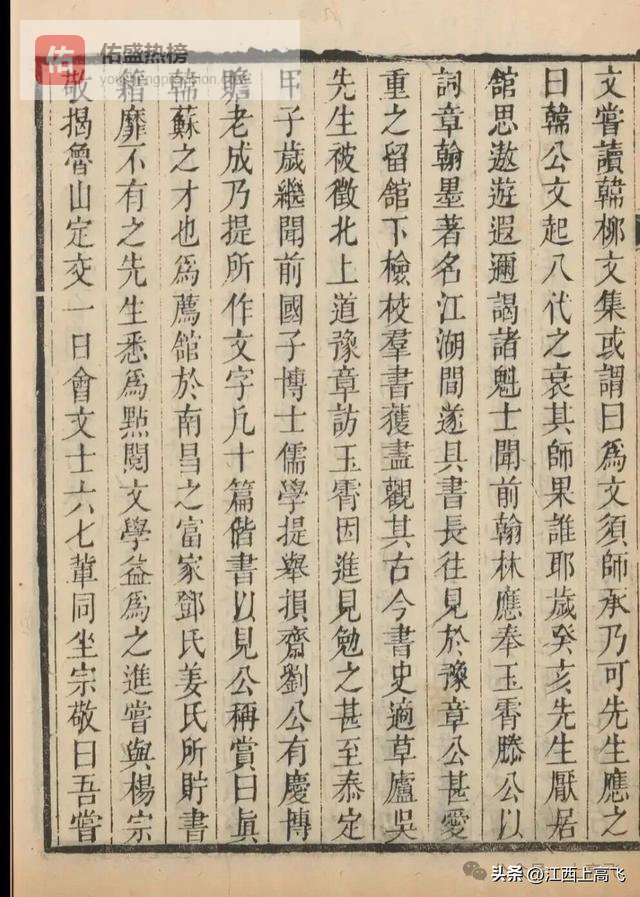 文嘗讀韓柳文集或謂曰爲文須師承乃可先生應之
曰韓公文起八代之衰其師果誰耶歲癸亥先生厭居
舘思遨遊遐邇謁諸魁士聞前翰林應奉玉霄滕公以
詞章翰墨著名江湖間遂具書長往見於豫章公甚愛
重之留舘下檢校羣書獲盡觀其古今書史適草廬吳
先生被徵北上道豫章訪玉霄因進見勉之甚至泰定
甲子歲繼聞前國子博士儒學提舉損齋劉公有慶博
贍老成乃提所作文字凡十篇偕書以見公稱賞曰眞
韓蘇之才也爲薦舘於南昌之富家鄧氏姜氏所貯書
籍靡不有之先生悉爲點閱文學益爲之進嘗與楊宗
敬揭魯山定交一日會文士六七輩同坐宗敬曰吾嘗
佑
佑盛热榜
youshengpassion.com
头条 @江西上高飞